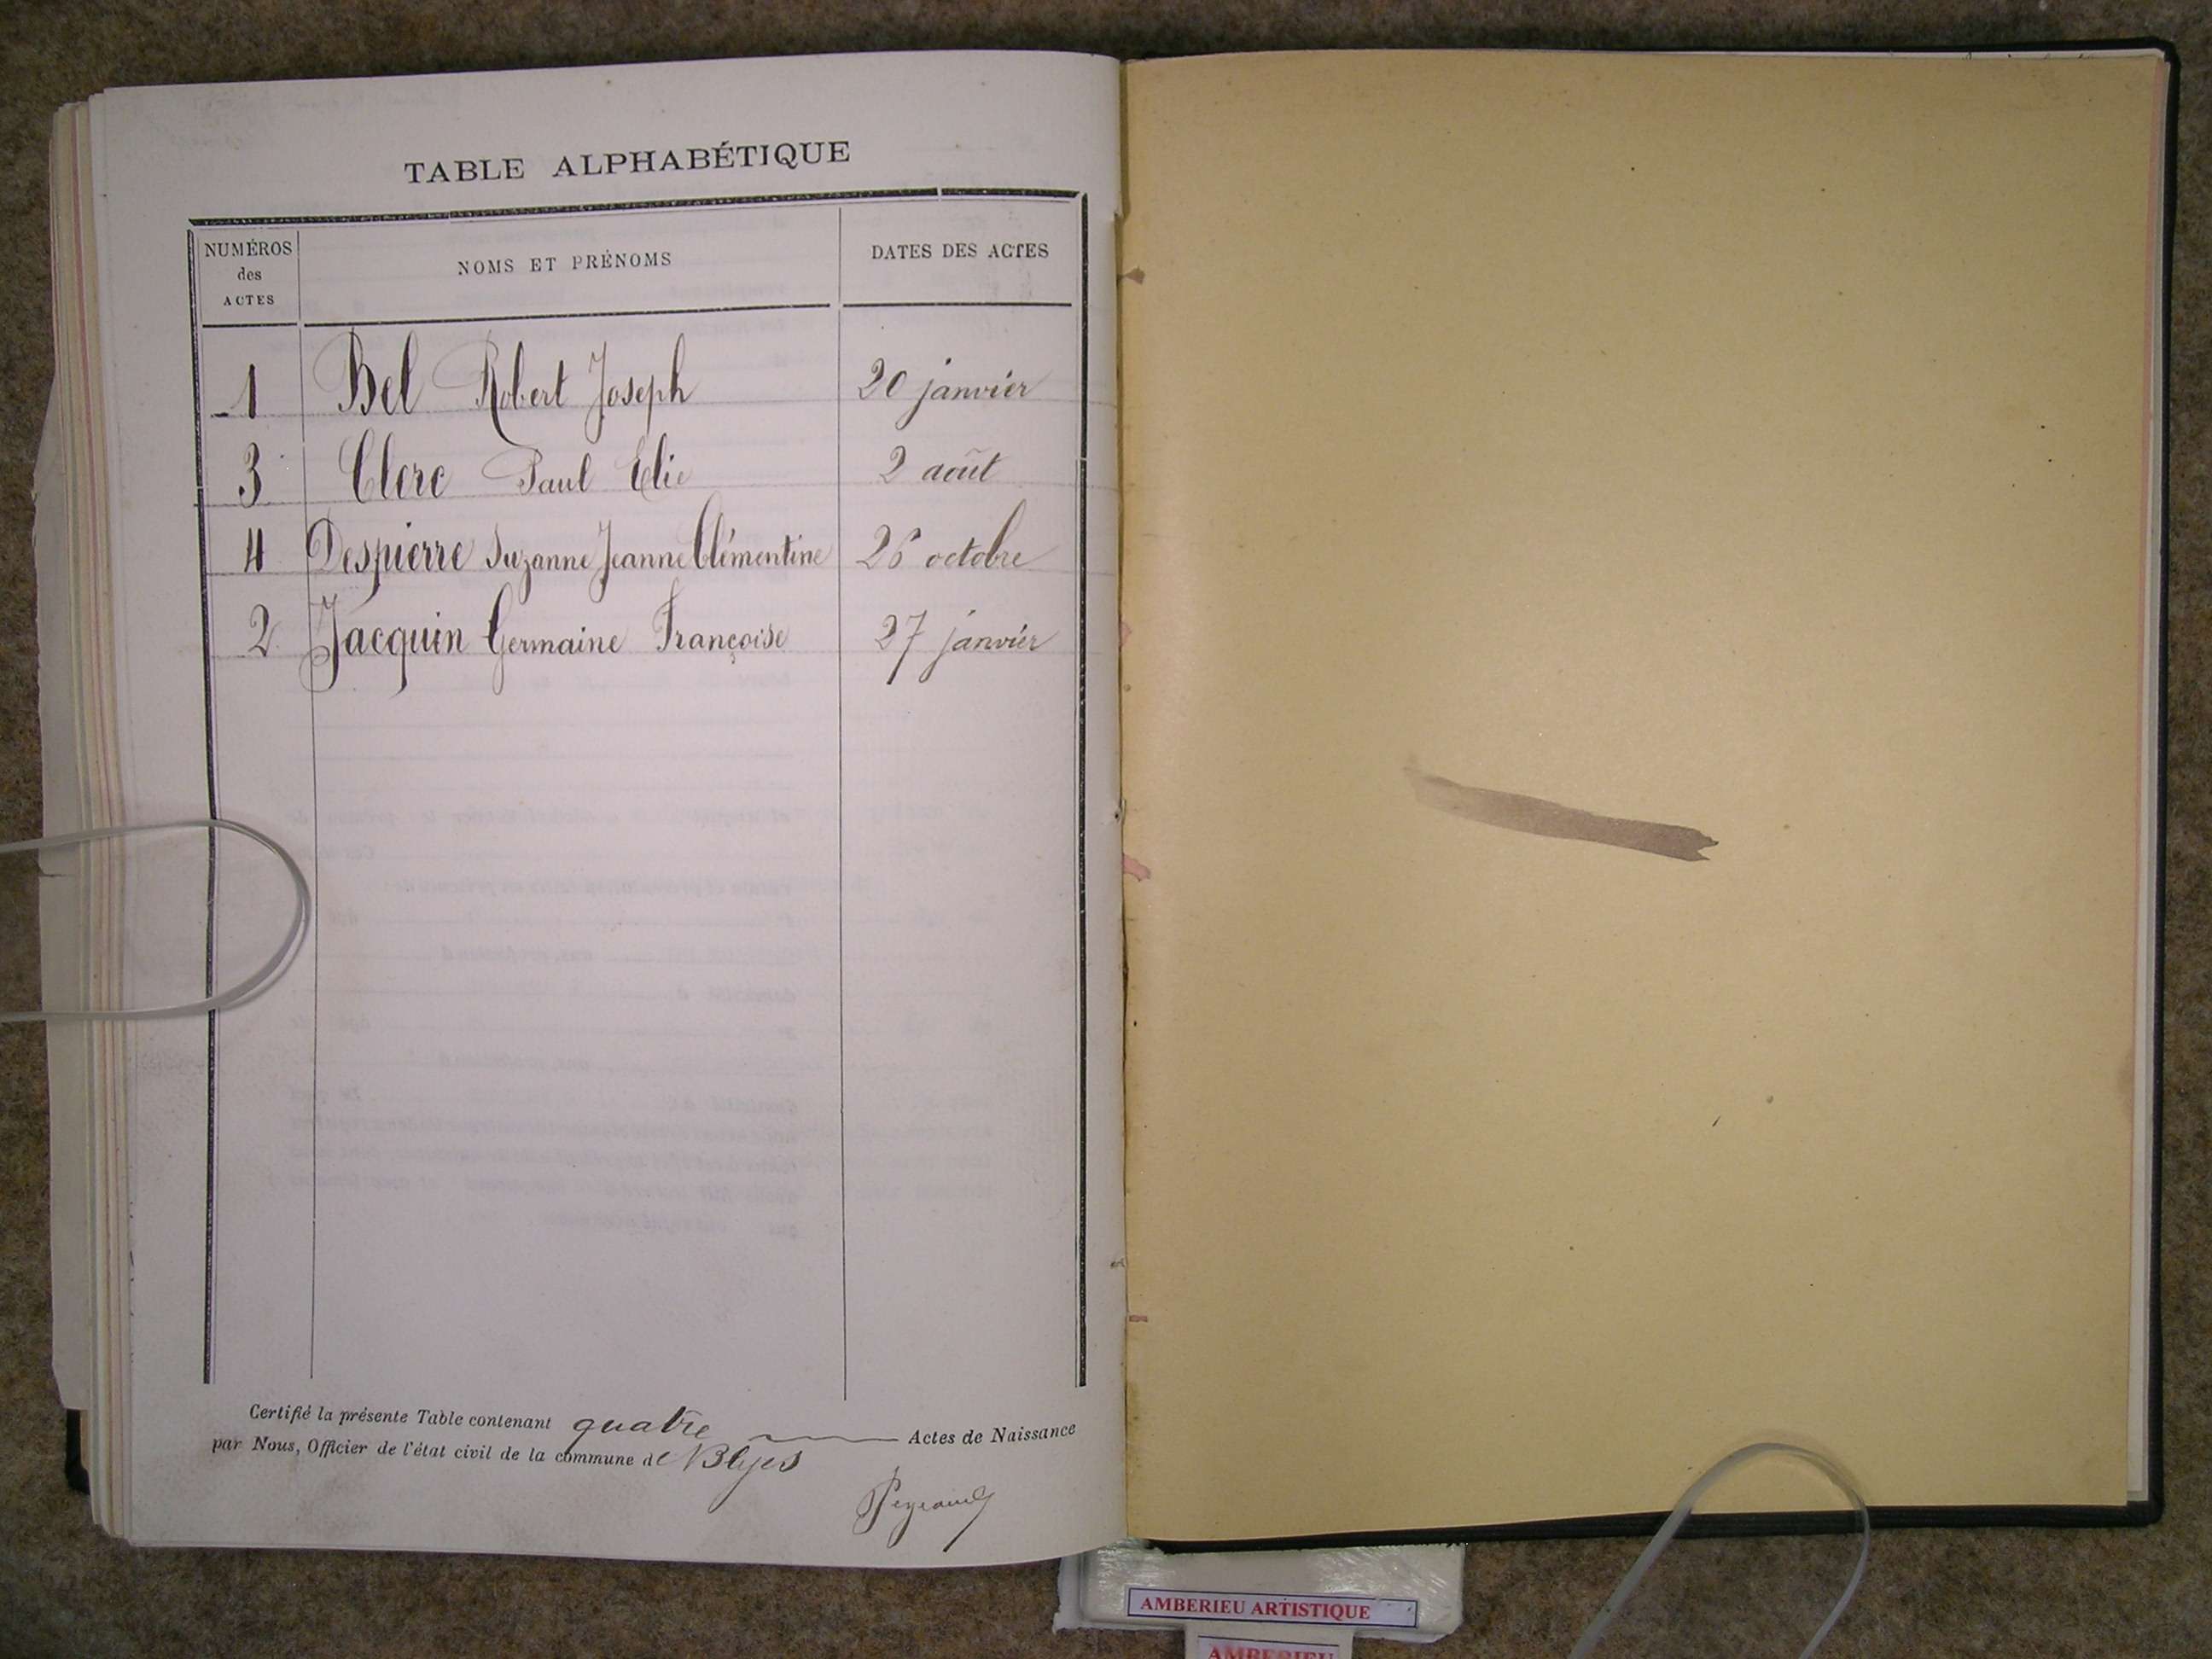 TABLE ALPHABÉTIQUE
NUMÉROS des ACTES NOMS ET PRÉNOMS DATES DES ACTES
1 Bel Robert Joseph 20 janvier
3 Clerc Paul Elie 2 août
4 Despierre Suzanne Jeanne Clémentine 26 octobre
2 Jacquin Germaine Françoise 27 janvier
Certifié la présente Table contenant quatre Actes de Naissance
par Nous, Officier de l'état civil de la commune de Blyes
AMBERIEU ARTISTIQUE
AMBERIEU